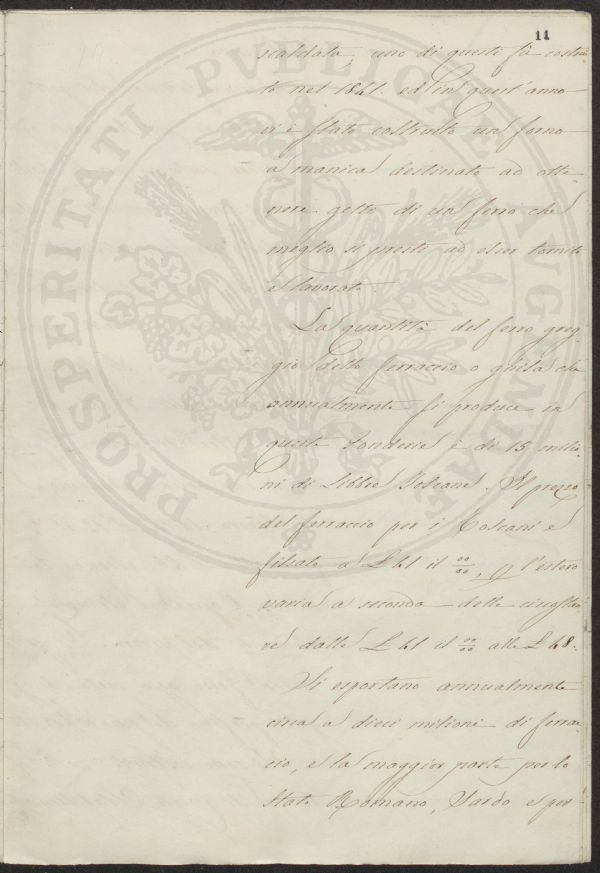 11
scaldata, uno di questi fù costrui
to nel 1841. ed in quest'anno
vi è stato costruito un forno
a manica destinato ad otte
nere getti di un ferro che
meglio si presti ad esser tornito
e lavorato
La quantità del ferro greg
gio detto ferraccio o ghisa che
annualmente si produce in
queste Fonderie è di 15 milio
ni di Libbre Toscane. Il prezzo
del ferraccio per i Toscani è
fissato a L 41 il 00/00, p l'estero
varia a seconda delle circostan
ze dalle L 41 il 00/00 alle L 48.
Si esportano annualmente
circa a dieci milioni di ferrac
cio, e la maggior parte per lo
Stato Romano, Sardo e per
PROSPERITATI PVBLICAE AVGENDAE